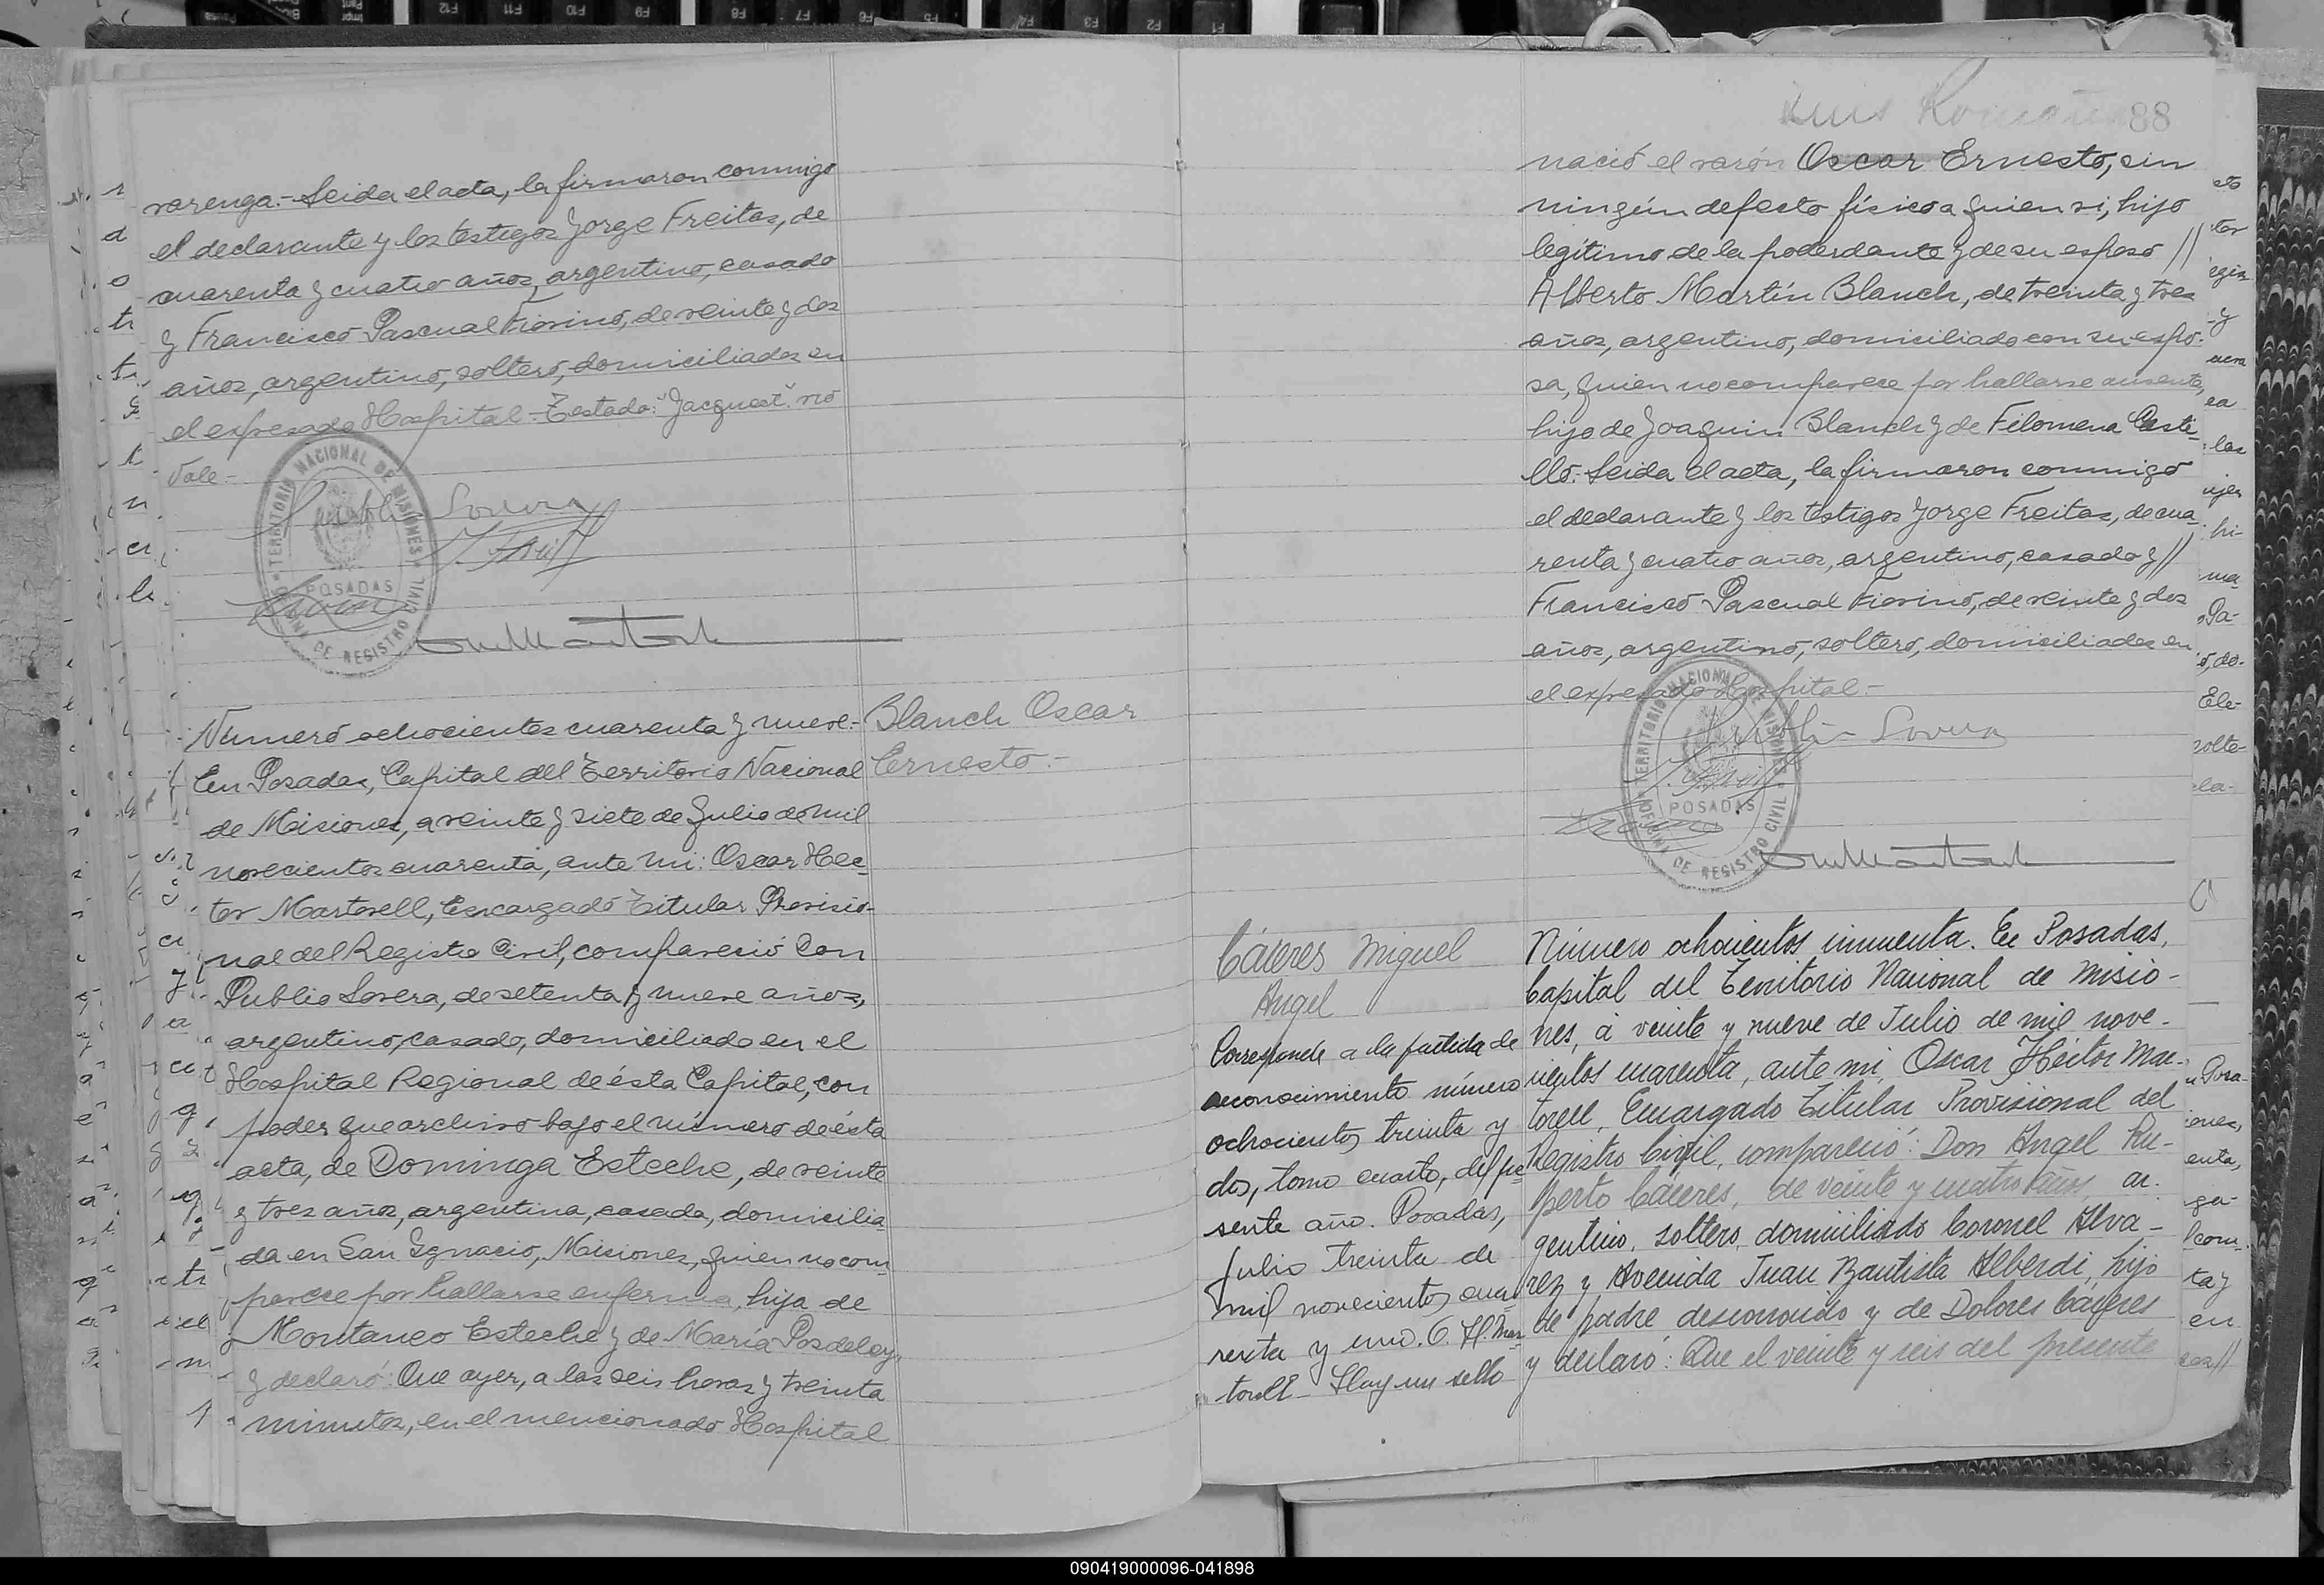 varenga.- Leida el acta, la firmaron conmigo
el declarante y los testigos Jorge Freitas, de
cuarenta y cuatro años, argentino, casado
y Francisco Pascual Fiorino, de veinte y dos
años, argentino, soltero, domiciliados en
el expresado Hospital.- Testado: "Jacquet". no
Vale.-
TERRITORIO NACIONAL DE MISIONES
POSADAS
OFICINA DE REGISTRO CIVIL
Numero ochocientos cuarenta y nueve.-
En Posadas, Capital del Territorio Nacional
de Misiones, a veinte y siete de Julio de mil
novecientos cuarenta, ante mi: Oscar Hec-
tor Martorell, Encargado Titular Provisio-
nal del Registro Civil, compareció Don
Publio Lovera, de setenta y nueve años,
argentino, casado, domiciliado en el
Hospital Regional de ésta Capital, con
poder que archivo bajo el número de ésta
acta, de Dominga Esteche, de veinte
y tres años, argentina, casada, domicilia-
da en San Ignacio, Misiones, quien no com-
parece por hallarse enferma, hija de
Montaneo Esteche y de María Posdeley,
y declaró: Que ayer, a las seis horas y treinta
minutos, en el mencionado Hospital
Blanch Oscar
Ernesto.-
Luis
88
nació el varón Oscar Ernesto, sin
ningún defecto físico a quien vi, hijo
legítimo de la poderdante y de su esposo //
Alberto Martín Blanch, de treinta y tres
años, argentino, domiciliado con su espo-
sa, quien no comparece por hallarse ausente,
hijo de Joaquin Blanch y de Filomena Casti-
llo. Leida el acta, la firmaron conmigo
el declarante y los testigos Jorge Freitas, de cua-
renta y cuatro años, argentino, casado y //
Francisco Pascual Fiorino, de veinte y dos
años, argentino, soltero, domiciliados en
el expresado Hospital.-
Publio Lovera
TERRITORIO NACIONAL DE MISIONES
POSADAS
OFICINA DE REGISTRO CIVIL
Cáceres Miguel
Angel
Corresponde a la partida de
reconocimiento número
ochocientos treinta y
dos, tomo cuarto, del pre-
sente año. Posadas,
Julio treinta de
mil novecientos cua-
renta y uno. O. H. Mar-
torell - Hay un sello
Número ochocientos cincuenta. En Posadas,
Capital del Territorio Nacional de Misio-
nes, á veinte y nueve de Julio de mil nove-
cientos cuarenta, ante mi, Oscar Héctor Mar-
torell, Encargado Titular Provisional del
Registro Civil, compareció: Don Angel Ru-
perto Cáceres, de veinte y cuatro años, ar-
gentino, soltero, domiciliado Coronel Alva-
rez y Avenida Juan Bautista Alberdi, hijo
de padre desconocido y de Dolores Cáceres
y declaró: Que el veinte y seis del presente
090419000096-041898